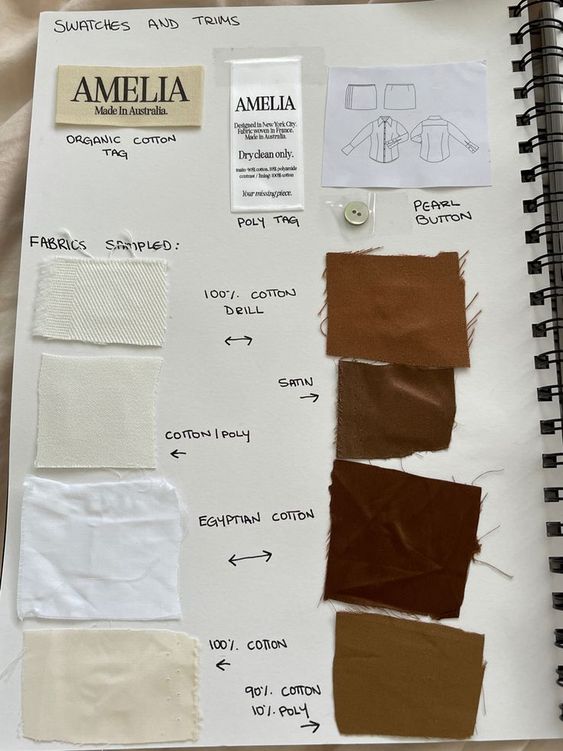 SWATCHES AND TRIMS
AMELIA
Made In Australia.
ORGANIC COTTON
TAG
AMELIA
Designed in New York City.
Fabric woven in France.
Made in Australia.
Dry clean only.
main: 90% cotton, 10% polyamide
contrast / lining: 100% cotton
Your missing piece.
POLY TAG
PEARL
BUTTON
FABRICS SAMPLED:
100% COTTON
DRILL
SATIN
COTTON/POLY
EGYPTIAN COTTON
100% COTTON
90% COTTON
10% POLY